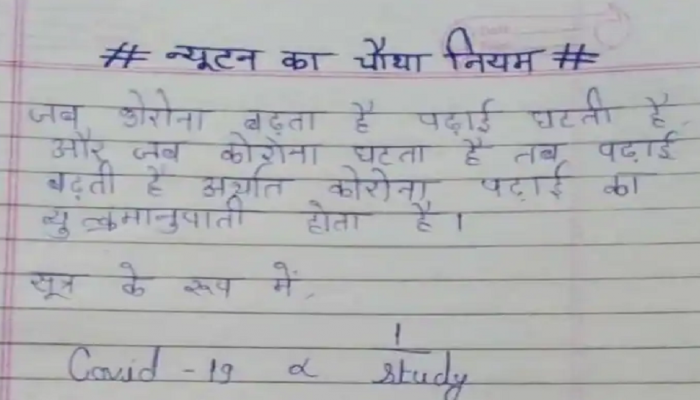 # न्यूटन का चौथा नियम #
जब कोरोना बढ़ता है पढ़ाई घटती है,
और जब कोरोना घटता है तब पढ़ाई
बढ़ती है अर्थात कोरोना पढ़ाई का
व्युत्क्रमानुपाती होता है।
सूत्र के रूप में,
Covid-19 ∝ 1/study